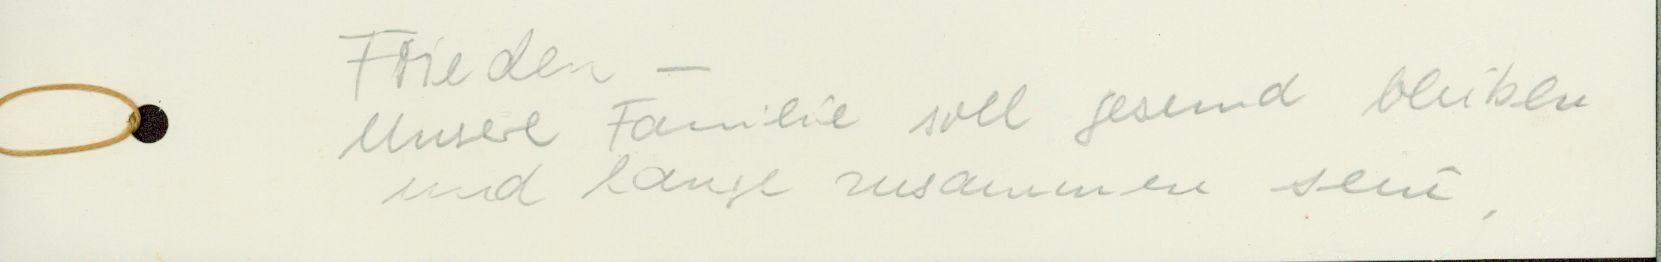 Frieden –
Unsere Familie soll gesund bleiben
und lange zusammen sein,